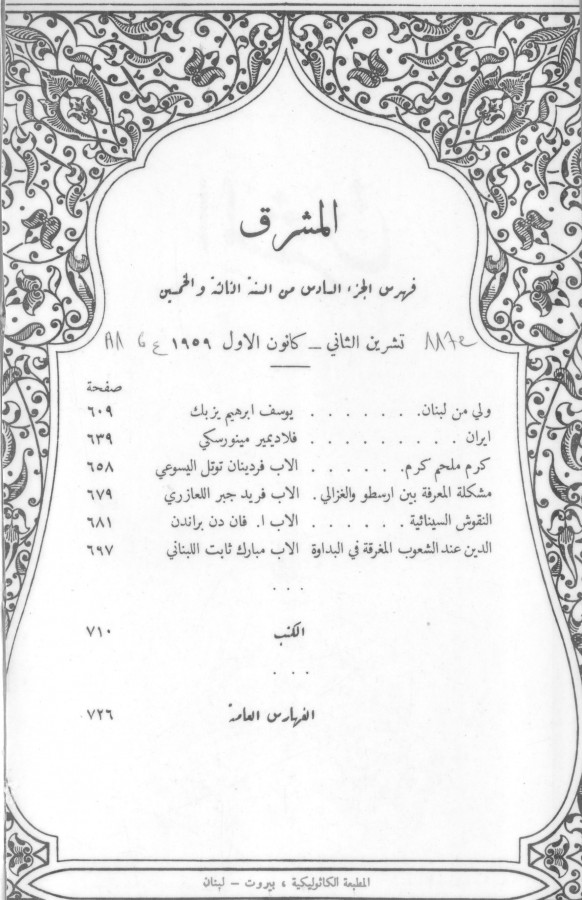 المشرق
فهرس الجزء السادس من السنة الثالثة والخمسين
تشرين الثاني – كانون الاول ١٩٥٩
صفحة
ولي من لبنان . . . . . . . يوسف ابرهيم يزبك ٦٠٩
ايران . . . . . . . . . فلاديمير مينورسكي ٦٣٩
كرم ملحم كرم . . . . . . الاب فردينان توتل اليسوعي ٦٥٨
مشكلة المعرفة بين ارسطو والغزالي . الاب فريد جبر اللعازري ٦٧٩
النقوش السينائية . . . . . . الاب ا. فان دن براندن ٦٨١
الدين عند الشعوب المغرقة في البداوة الاب مبارك ثابت اللبناني ٦٩٧
. . .
الكتب ٧١٠
. . .
الفهارس العامة ٧٢٦
المطبعة الكاثوليكية ، بيروت – لبنان